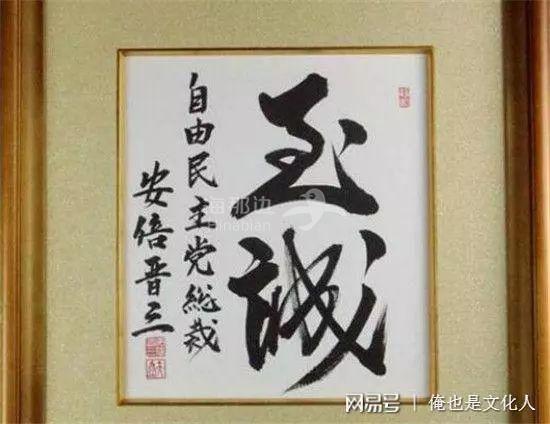 至誠
自由民主党総裁
安倍晋三
海那边
hinabian
网易号 | 俺也是文化人